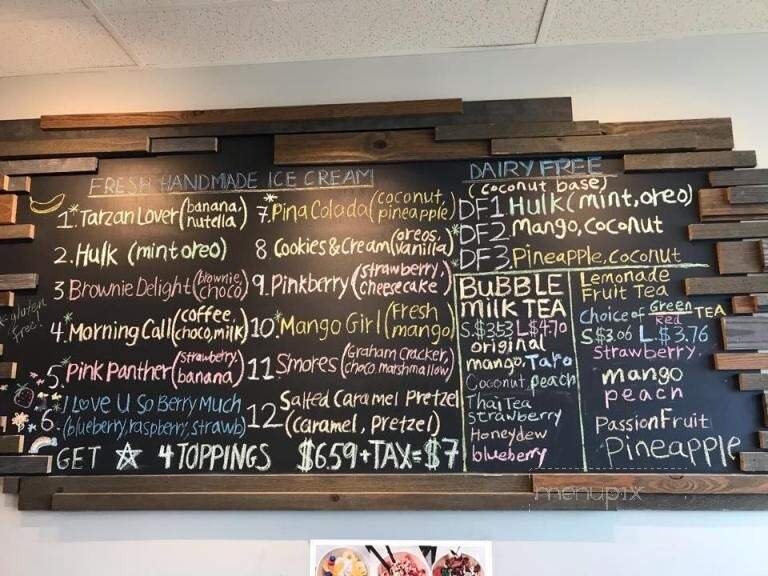 FRESH HANDMADE ICE CREAM
1. Tarzan Lover (banana, nutella)
2. Hulk (mint oreo)
3 Brownie Delight (brownie, choco)
*gluten free.
4. Morning Call (coffee, choco, milk)
5. Pink Panther (Strawberry, banana)
6. I Love U So Berry Much
(blueberry, raspberry, strawb)
7. Pina Colada (coconut, pineapple)
8. Cookies & Cream (oreos, vanilla)
9. Pinkberry (strawberry, cheesecake)
10. Mango Girl (Fresh mango)
11 S'mores (Graham Cracker, choco marshmallow)
12 Salted Caramel Pretzel
(caramel, Pretzel)
GET ☆ 4 TOPPINGS $6.59+TAX=$7
DAIRY FREE
(coconut base)
DF1 Hulk (mint, oreo)
DF2 Mango, Coconut
DF3 Pineapple, coconut
BUBBLE
MILK TEA
S.$3.53 L.$4.70
original
mango, Taro
Coconut, peach
Thai Tea
Strawberry
Honeydew
blueberry
Lemonade
Fruit Tea
Choice of Green Red TEA
S $3.06 L.$3.76
Strawberry,
mango
peach
Passion Fruit
Pineapple
menupix